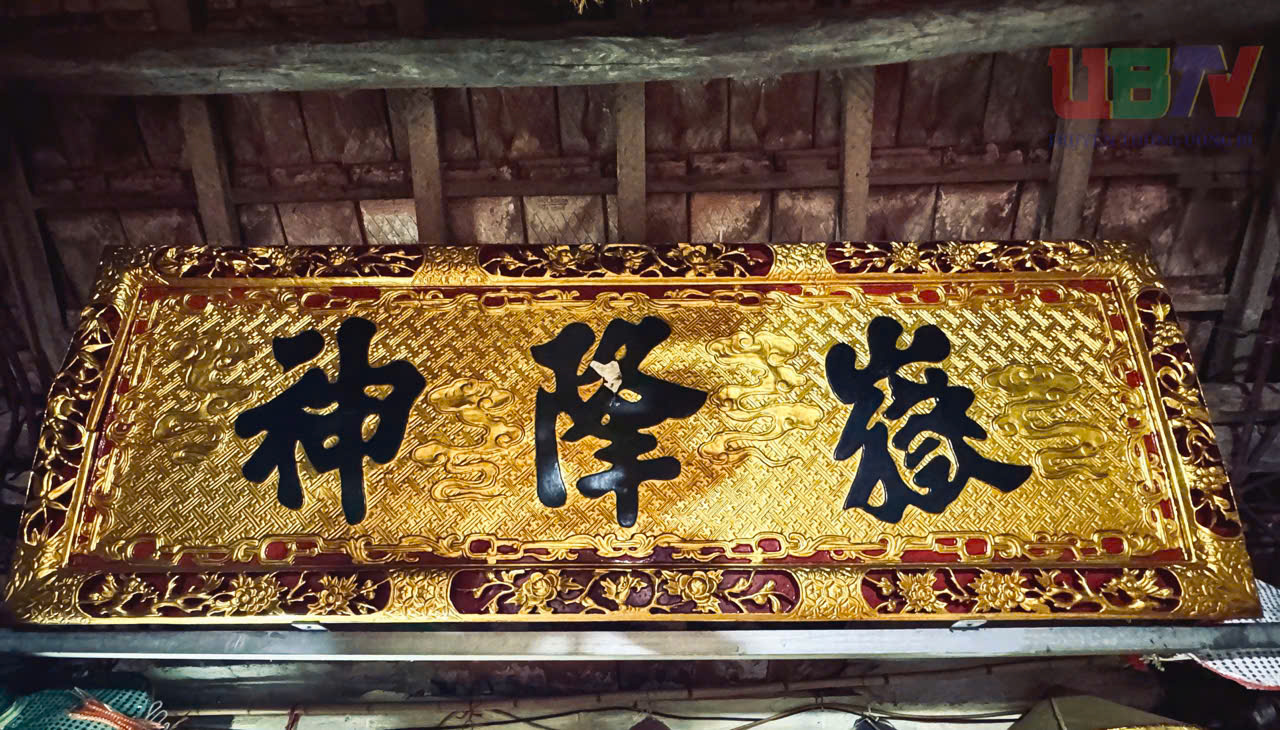 嶽降神
UBTV